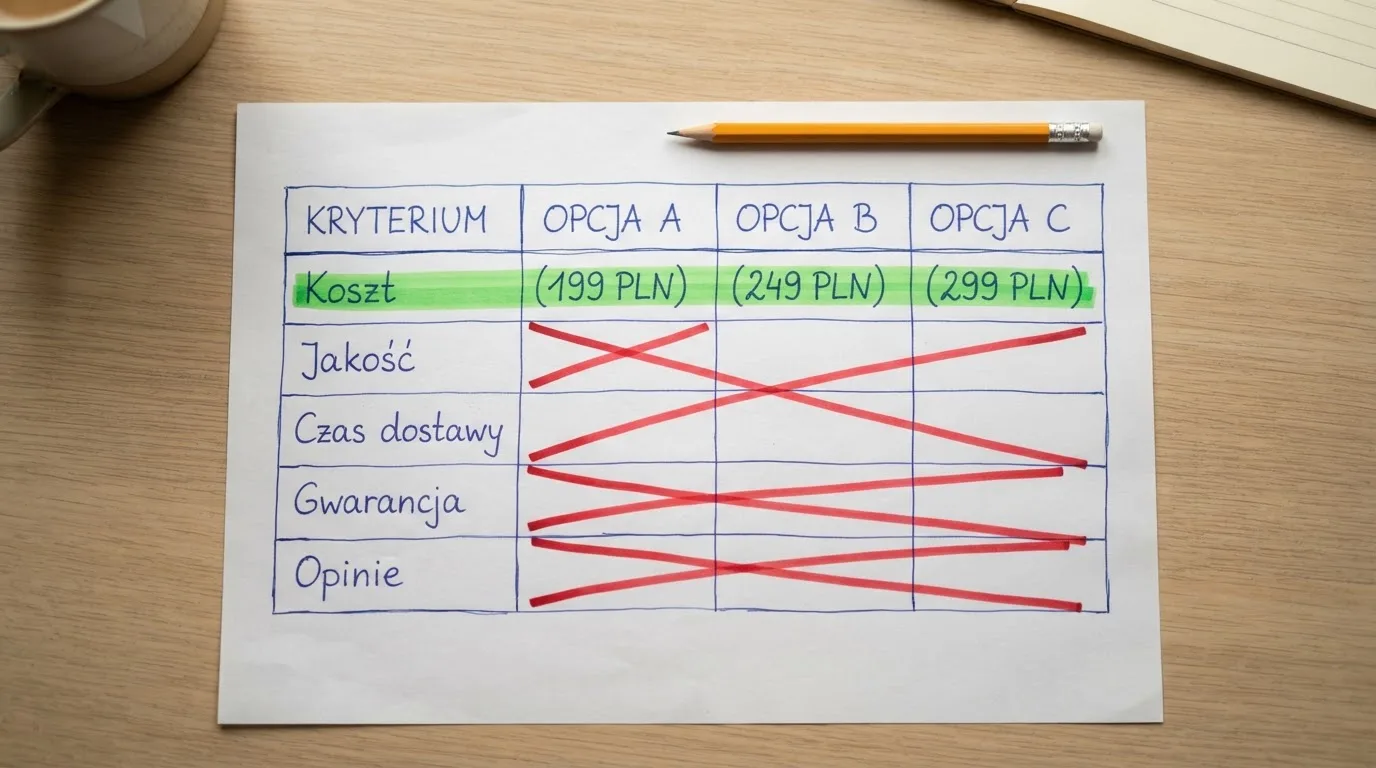 KRYTERIUM OPCJA A OPCJA B OPCJA C
Koszt (199 PLN) (249 PLN) (299 PLN)
Jakość
Czas dostawy
Gwarancja
Opinie